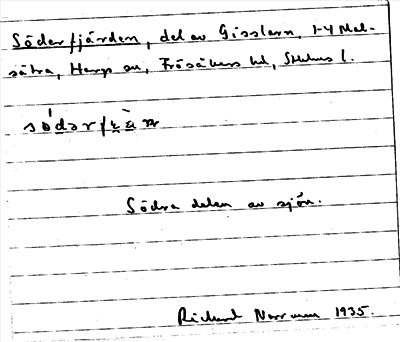 Söderfjärden, del av Gisslaren, 1-4 Mal-
sätra, Harg sn, Frösåkers hd, Sthlms l.
Södra delen av sjön.
Richard Norrman 1935.